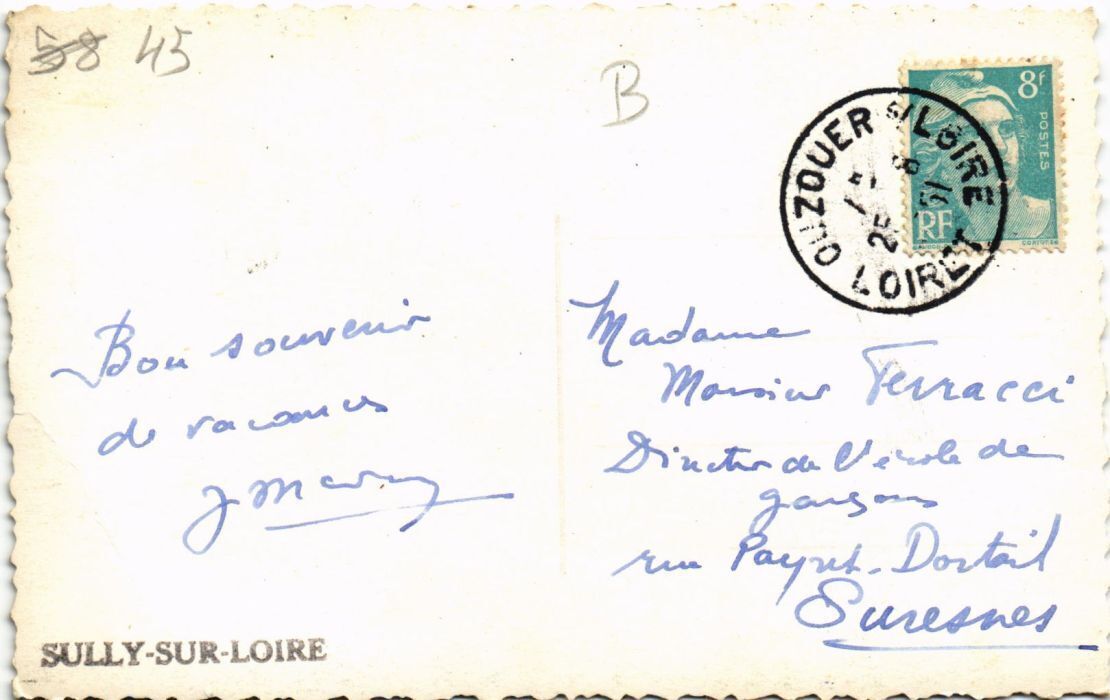 58 45
B
8f
POSTES
RF
OUZOUER S/LOIRE
25
8
51
LOIRET
Bon souvenir
de vacances
Madame
Monsieur Ferracci
Directeur de l'école de
garçons
rue Payret-Dortail
Suresnes
SULLY-SUR-LOIRE